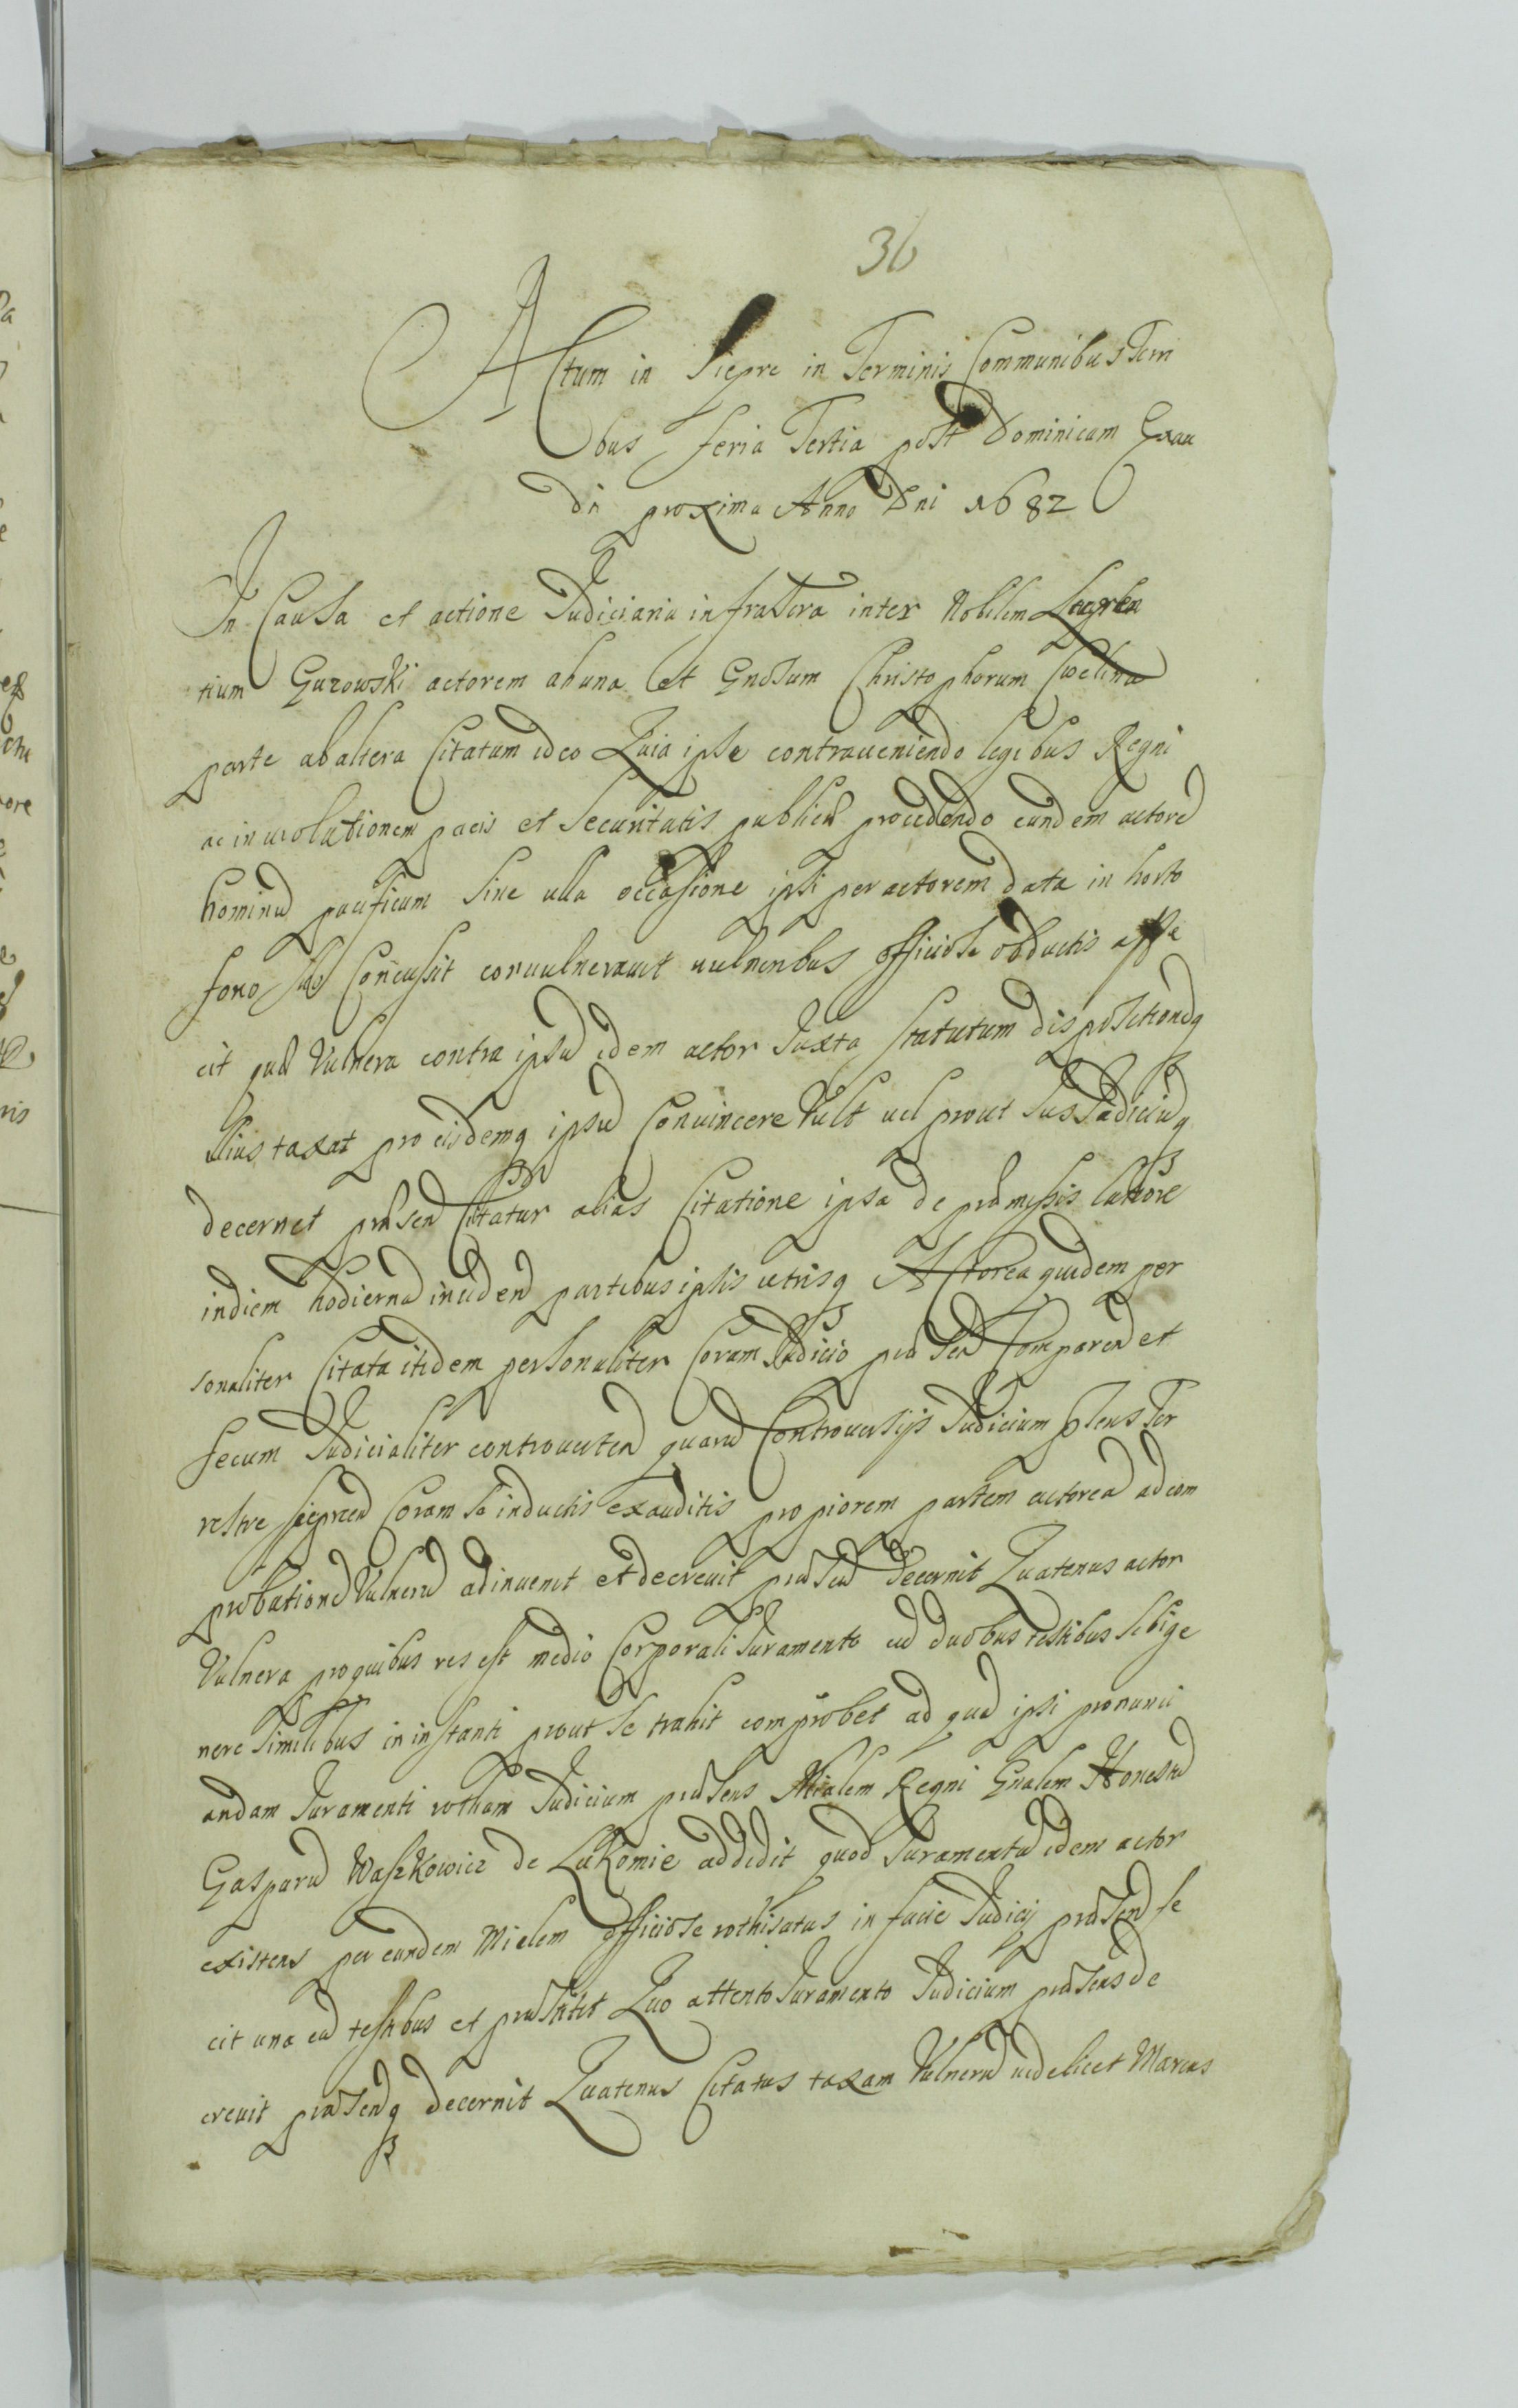 36
Actum in Siepre in Terminis Communibus Terri
bus feria Tertia post Dominicam Exau
di proxima Anno Dni 1682
In Causa et actione Judiciaria infrascra inter Nobilem Laуren
tium Guzowski actorem ab una et Gnosum Christophorum Cieclina
parte ab altera Citatum ideo Quia ipse contraueniendo legibus Regni
ac in uiolationem pacis et Securitatis publicae procedendo eundem actorē
hominē pacificum sine ulla occasione ipsi per actorem data in horto
Concussit conuulnerauit uulneribus officiose obductis affe
cit quae Vulnera contra ipsū idem actor Juxta Statutum dispositionēq
illius taxat pro eisdemq ipsū Conuincere Vult uel prout Jus Judiciūq
decernet praesen Citatur alias Citatione ipsa de praemissis latiore
in diem hodiernā inciden partibus ipsis utrisq Actorea quidem per
sonaliter Citata itidem personaliter Coram Judicio praesen Comparen et
secum Judicialiter controuerten quarū Controuersijs Judicium pnens Ter
restre Sieprcen Coram se inductis exauditis propiorem partem actoreā ad com
probationē Vulnerū adinuenit et decreuit praesen decernit Quatenus actor
Vulnera pro quibus res est medio Corporali Juramento cū duobus testibus sibi ge
nere similibus in instanti prout se trahit comprobet ad quod ipsi pronunci
andam Juramenti rotham Judicium praesens Mialem Regni Gnalem Honestū
Gasparū Waszkowicz de Lukomie addidit quod Juramentū idem actor
existens per eundem Mielem officiose rothisatus in facie Judicij praesen fe
cit una cū testibus et praestitit Quo attento Juramento Judicium praesens de
creuit praesenq decernit Quatenus Citatus taxam Vulnerū uidelicet Marcas